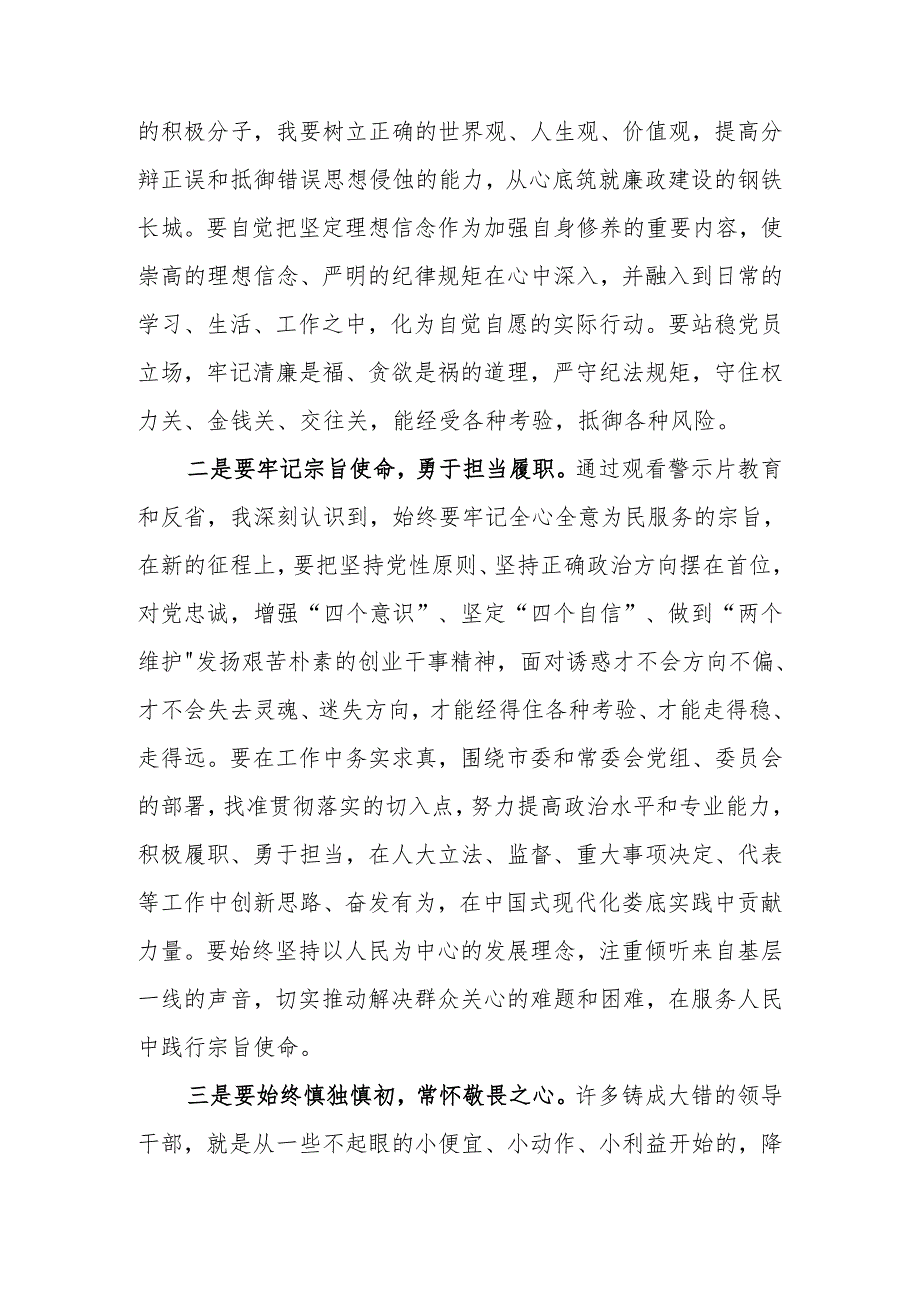 的积极分子，我要树立正确的世界观、人生观、价值观，提高分
辩正误和抵御错误思想侵蚀的能力，从心底筑就廉政建设的钢铁
长城。要自觉把坚定理想信念作为加强自身修养的重要内容，使
崇高的理想信念、严明的纪律规矩在心中深入，并融入到日常的
学习、生活、工作之中，化为自觉自愿的实际行动。要站稳党员
立场，牢记清廉是福、贪欲是祸的道理，严守纪法规矩，守住权
力关、金钱关、交往关，能经受各种考验，抵御各种风险。
二是要牢记宗旨使命，勇于担当履职。通过观看警示片教育
和反省，我深刻认识到，始终要牢记全心全意为民服务的宗旨，
在新的征程上，要把坚持党性原则、坚持正确政治方向摆在首位，
对党忠诚，增强“四个意识”、坚定“四个自信”、做到“两个
维护"发扬艰苦朴素的创业干事精神，面对诱惑才不会方向不偏、
才不会失去灵魂、迷失方向，才能经得住各种考验、才能走得稳、
走得远。要在工作中务实求真，围绕市委和常委会党组、委员会
的部署，找准贯彻落实的切入点，努力提高政治水平和专业能力，
积极履职、勇于担当，在人大立法、监督、重大事项决定、代表
等工作中创新思路、奋发有为，在中国式现代化娄底实践中贡献
力量。要始终坚持以人民为中心的发展理念，注重倾听来自基层
一线的声音，切实推动解决群众关心的难题和困难，在服务人民
中践行宗旨使命。
三是要始终慎独慎初，常怀敬畏之心。许多铸成大错的领导
干部，就是从一些不起眼的小便宜、小动作、小利益开始的，降